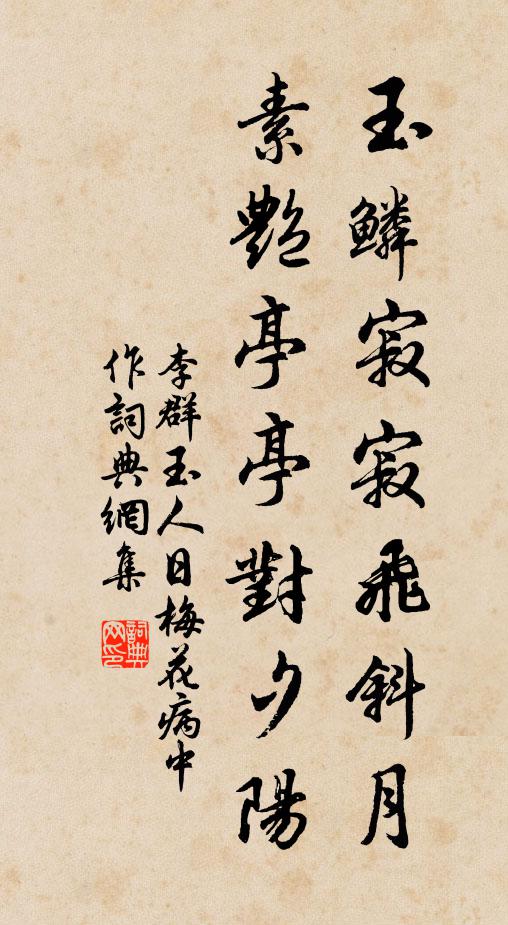 玉鱗寂寂飛斜月
素艷亭亭對夕陽
李群玉人日梅花病中
作詞典網集
詞典
网印